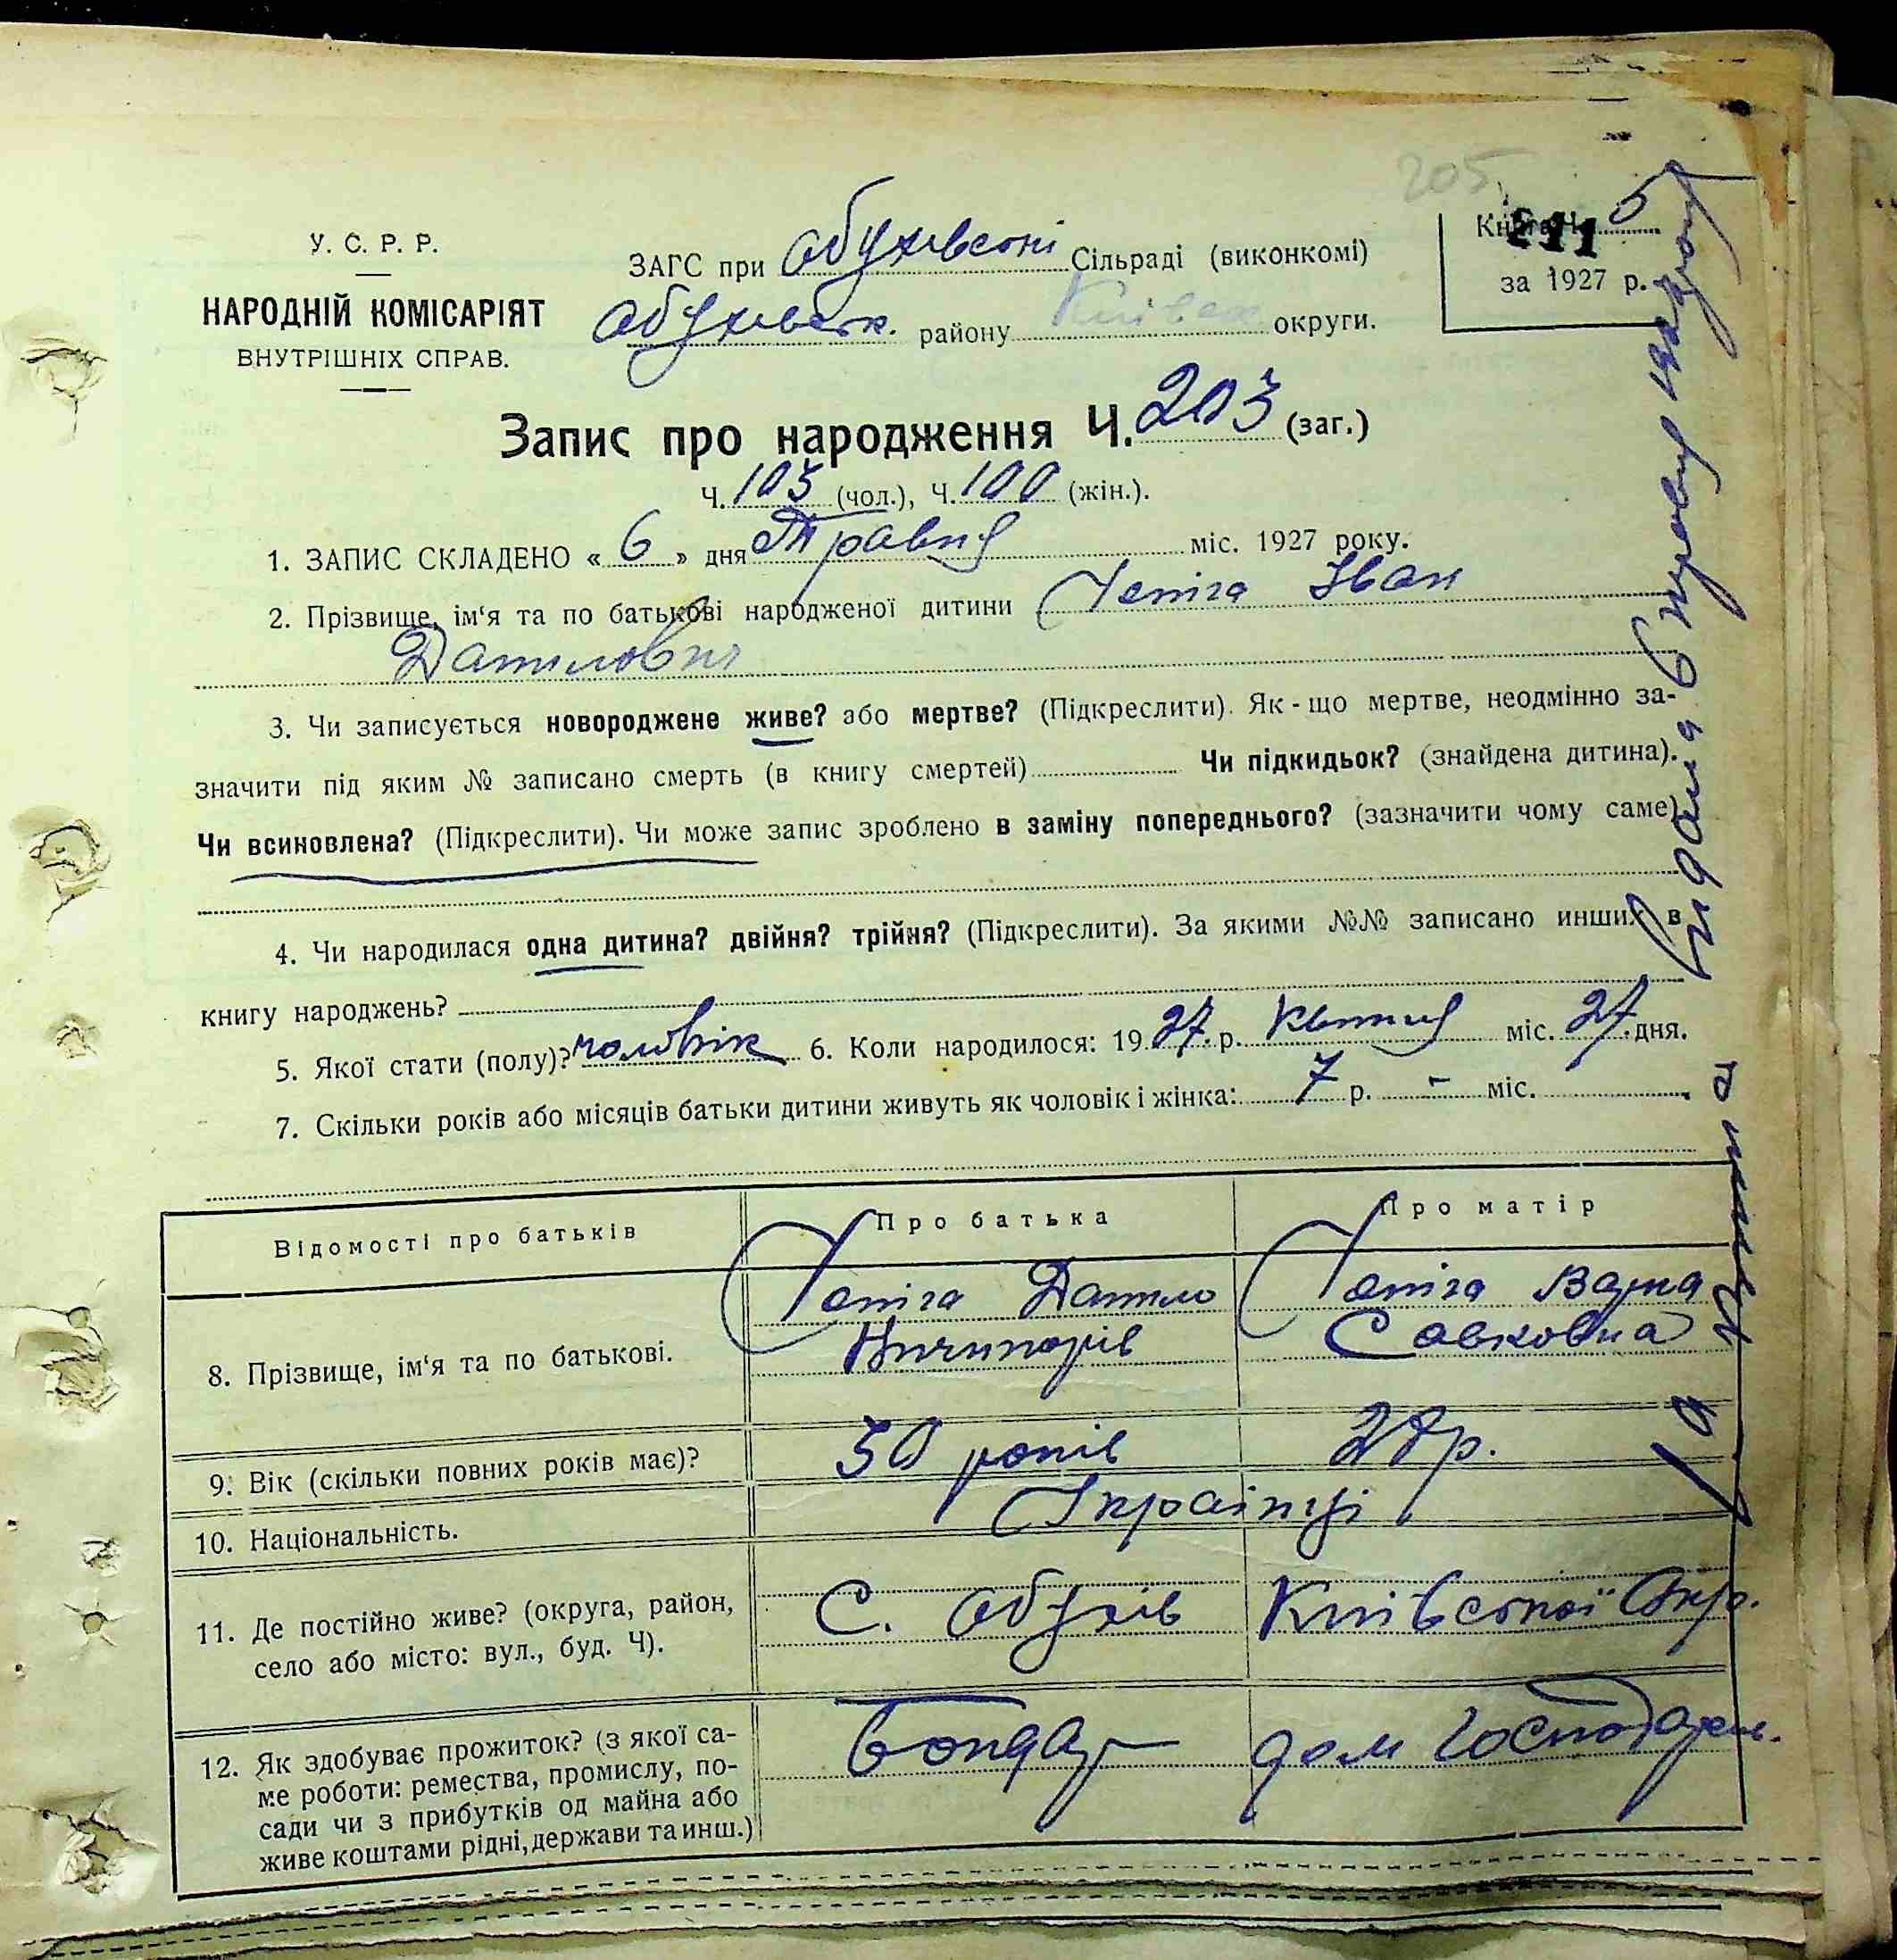 205
У. С. Р. Р.
НАРОДНІЙ КОМІСАРІЯТ
ВНУТРІШНІХ СПРАВ.
ЗАГС при Обухівські Сільраді (виконкомі)
Обухівськ. району Київськ округи.
5
211
за 1927 р.
Запис про народження Ч. 203 (заг.)
Ч. 103 (чол.), Ч. 100 (жін.).
1. ЗАПИС СКЛАДЕНО « 6 » дня Травня міс. 1927 року.
2. Прізвище, ім‘я та по батькові народженої дитини Чепіга Іван
Данилович
3. Чи записується новороджене живе? або мертве? (Підкреслити). Як - що мертве, неодмінно за-
значити під яким № записано смерть (в книгу смертей) Чи підкидьок? (знайдена дитина).
Чи всиновлена? (Підкреслити). Чи може запис зроблено в заміну попереднього? (зазначити чому саме)
4. Чи народилася одна дитина? двійня? трійня? (Підкреслити). За якими №№ записано инших в
книгу народжень?
5. Якої стати (полу)? чоловік 6. Коли народилося: 1927. р. Квітня міс. 27. дня.
7. Скільки років або місяців батьки дитини живуть як чоловік і жінка: 7 р. - міс.
Відомості про батьків Про батька Про матір
8. Прізвище, ім‘я та по батькові.
Чепіга Данило
Ничипорів
Чепіга
Савковна
9. Вік (скільки повних років має)? 30 років р.
10. Національність. Українці
11. Де постійно живе? (округа, район,
село або місто: вул., буд. Ч).
С. Обухів Київської Окр.
12. Як здобуває прожиток? (з якої са-
ме роботи: ремества, промислу, по-
сади чи з прибутків од майна або
живе коштами рідні, держави та инш.)
Бондар дом господарк.